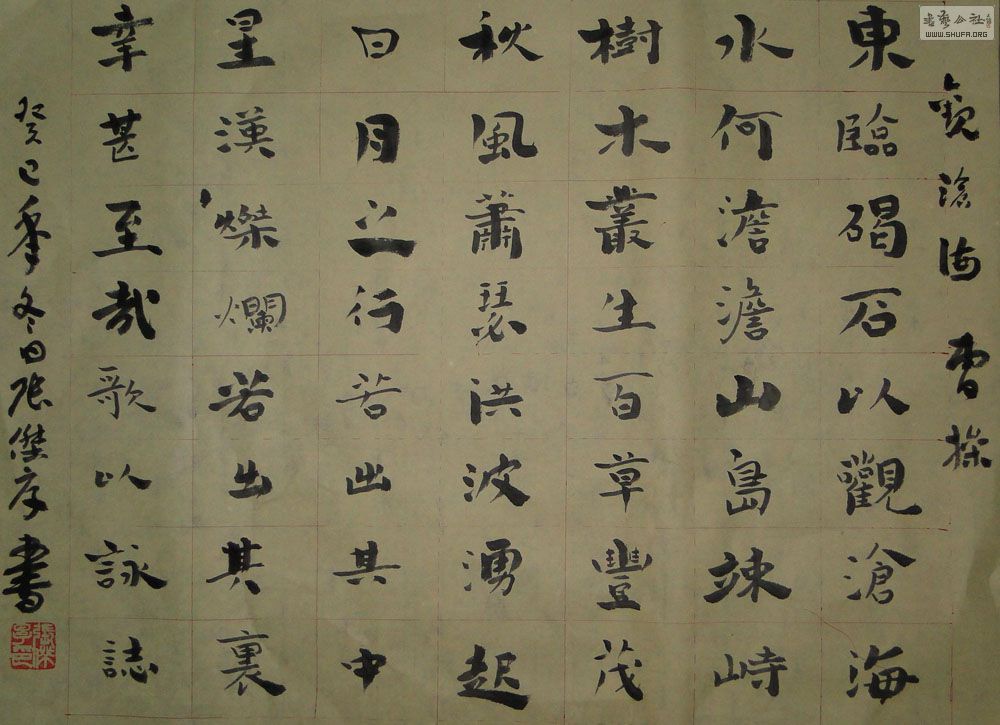 書藝公社
WWW.SHUFA.ORG
觀滄海 曹操
東臨碣石以觀滄海
水何澹澹山島竦峙
樹木叢生百草豐茂
秋風蕭瑟洪波湧起
日月之行若出其中
星漢燦爛若出其裏
幸甚至哉歌以詠誌
癸巳年冬日張傑序書